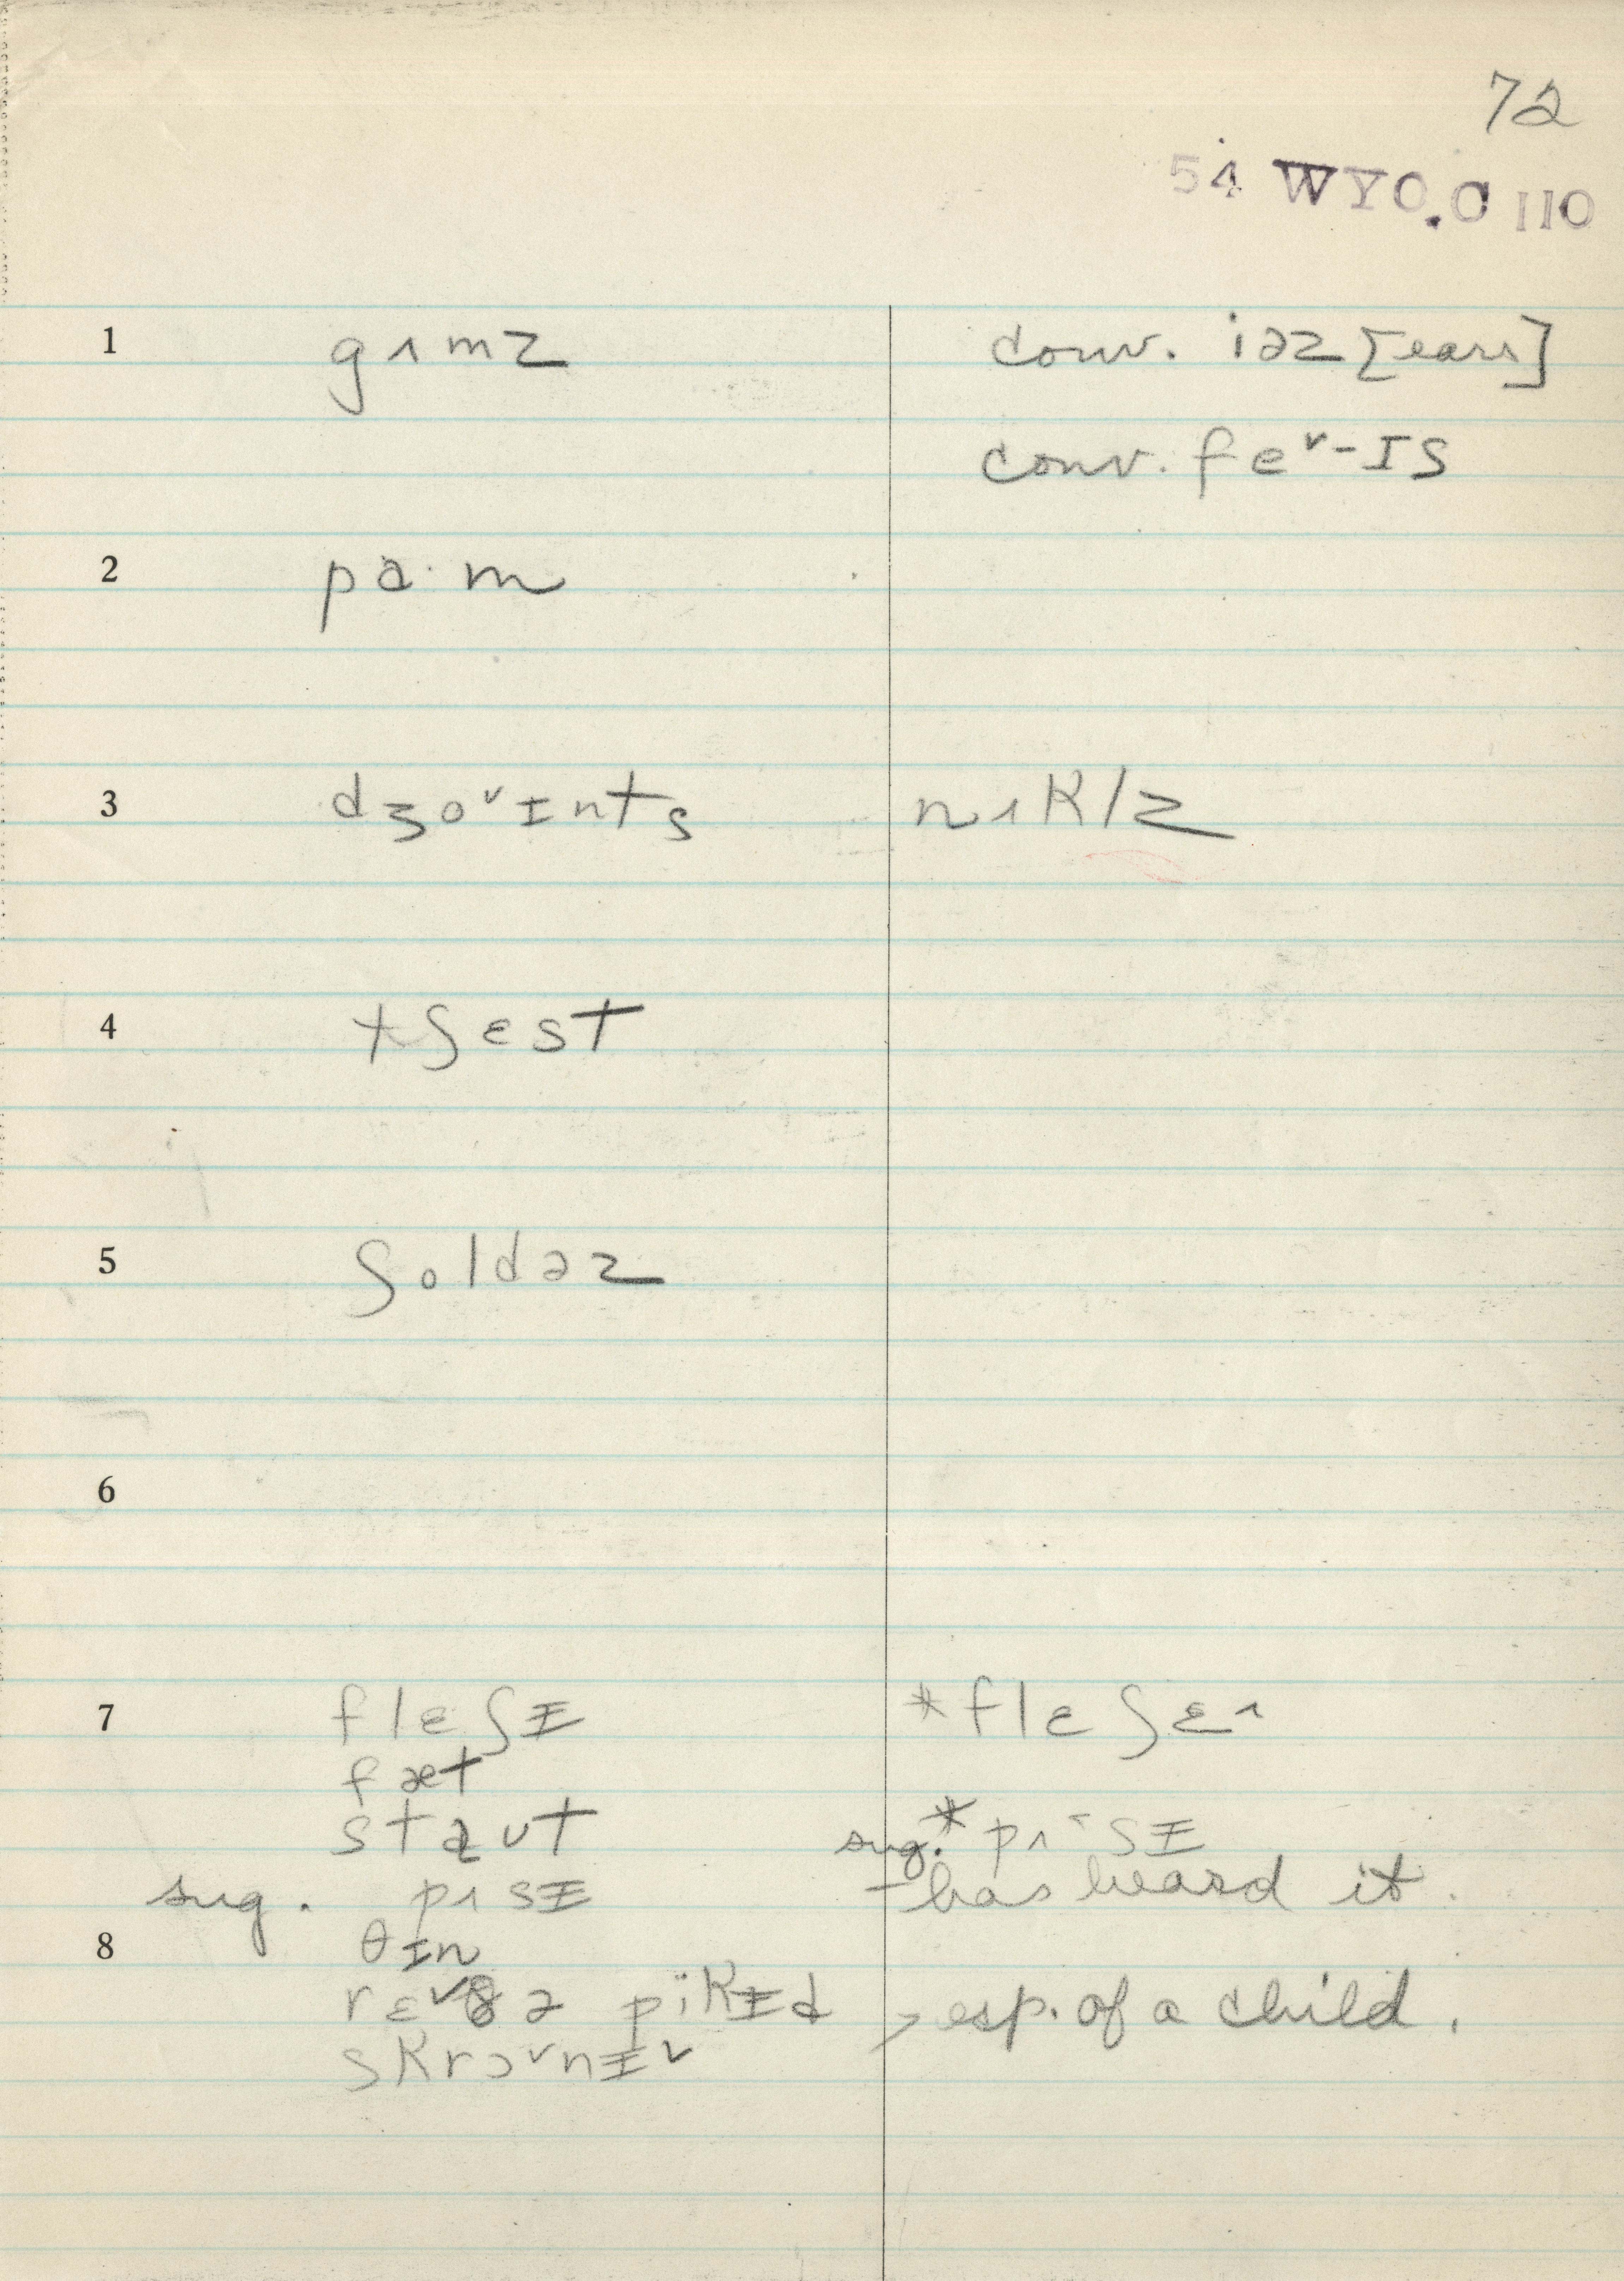 72
54 WYO.C 110
1 gʌmz conv. iəz [ears]
conv. fe˅-ɪs
2 pa·m
3 dʒo˅ɪnts nʌklz
4 tʃɛst
5 ʃoldəz
6
7 flɛʃɪ *flɛʃɛ^
fæt
staut sug.* pʌ˄sɪ
sug. pʌsɪ -has heard it.
8 θɪn
rɛ˅ðə pïkɪd > esp. of a child.
skrɔ˅nɪ˅